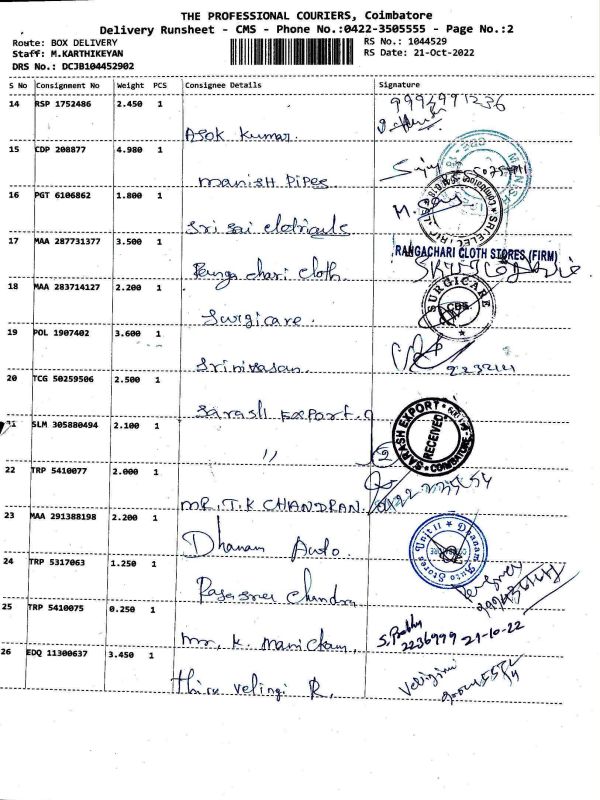 THE PROFESSIONAL COURIERS, Coimbatore
Delivery Runsheet - CMS - Phone No.:0422-3505555 - Page No.:2
Route: BOX DELIVERY
RS No.: 1044529
Staff: M.KARTHIKEYAN
RS Date: 21-Oct-2022
DRS No.: DCJB104452902
S No Consignment No Weight PCS Consignee Details Signature
14 RSP 1752486 2.450 1 Asok Kumar
15 CDP 208877 4.980 1 Manish Pipes
16 PGT 6106862 1.800 1 Sri Sai
17 MAA 287731377 3.500 1 Ranga chari cloth
RANGACHARI CLOTH STORES (FIRM)
18 MAA 283714127 2.200 1 Surgicare
SURGICARE
CBE.
19 POL 1907402 3.600 1 Srinivasan
20 TCG 50259506 2.500 1 Sarash Export
SARASH EXPORT
RECEIVED
COIMBATORE
21 SLM 305880494 2.100 1 "
22 TRP 5410077 2.000 1 MR.T.K CHANDRAN
23 MAA 291388198 2.200 1 Dhanam Auto
Dhanam Auto Stores Unit II
24 TRP 5317063 1.250 1 Rajasree Chandra
25 TRP 5410075 0.250 1 Mr. K. Manickam
S. Prabhu
2236999 21-10-22
26 EDQ 11300637 3.450 1 Thiru Velingi R.